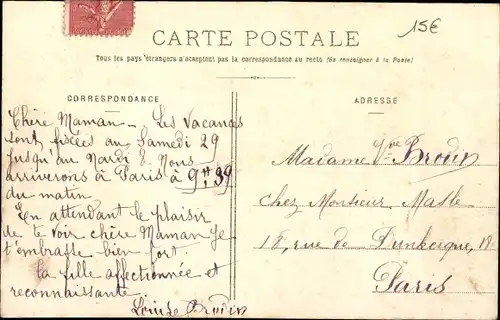 15€
CARTE POSTALE
Tous les pays étrangers n'acceptent pas la correspondance au recto (Se renseigner à la Poste)
CORRESPONDANCE
Chère Maman _ Les Vacances
sont fixées au Samedi 29
jusqu'au Mardi 8. Nous
arriverons à Paris à 9H,39
du matin.
En attendant le plaisir
de te voir chère Maman je
t'embrasse bien fort
ta fille affectionnée et
reconnaissante.
Louise Brodin
ADRESSE
Madame Vve Brodin
chez Monsieur Masle
18, rue de Dunkerque, 18
Paris